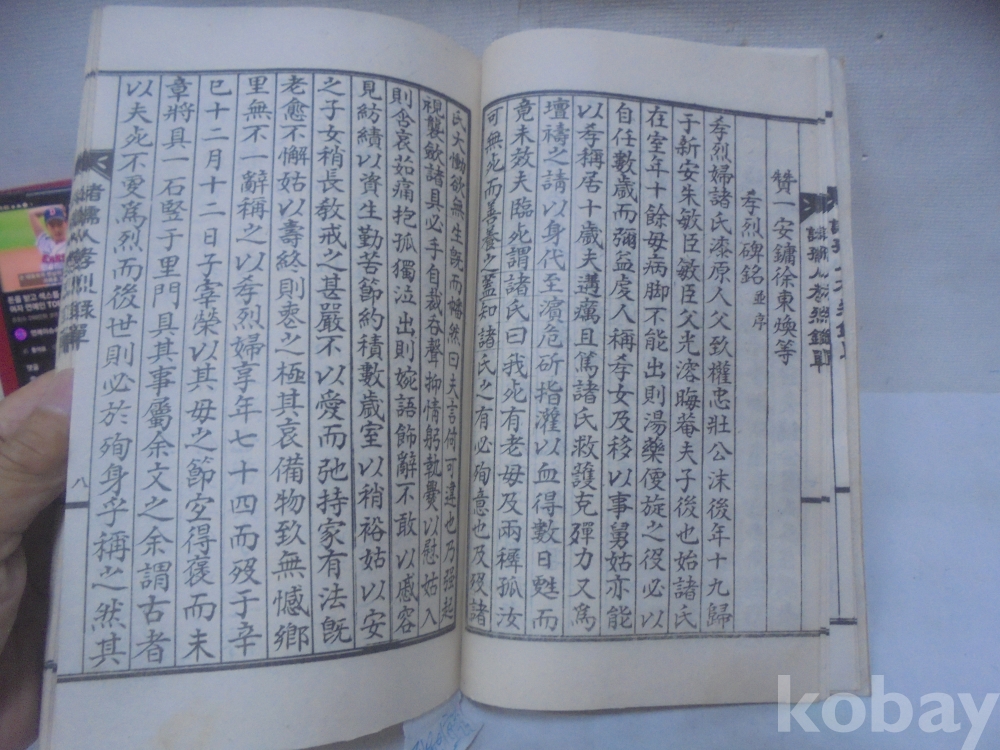 贊一安鏞徐東煥等
孝烈碑銘 並序
孝烈婦諸氏漆原人父致權忠壯公沫後年十九歸
于新安朱敏臣敏臣父光溶晦菴夫子後也始諸氏
在室年十餘母病脚不能出則湯藥便旋之役必以
自任數歲而彌益虔人稱孝女及移以事舅姑亦能
以孝稱居十歲夫遘癘且篤諸氏救護克殫力又爲
壇禱之請以身代至濱危斫指灌以血得數日甦而
竟未效夫臨死謂諸氏曰我死有老母及兩穉孤汝
可無死而善養之蓋知諸氏之有必殉意也及歿諸
氏大慟欲無生旣而幡然曰夫言何可違也乃强起
視襲斂諸具必手自裁吞聲抑情躬執爨以慰姑入
則含哀茹痛抱孤獨泣出則婉語飾辭不敢以慼容
見紡績以資生勤苦節約積數歲室以稍裕姑以安
之子女稍長敎戒之甚嚴不以愛而弛持家有法旣
老愈不懈姑以壽終則喪之極其哀備物致無憾鄕
里無不一辭稱之以孝烈婦享年七十四而歿于辛
巳十二月十二日子宰榮以其母之節宜得褒而未
章將具一石竪于里門具其事屬余文之余謂古者
以夫死不更爲烈而後世則必於殉身乎稱之然其
諸孺人孝烈錄單
八
kobay